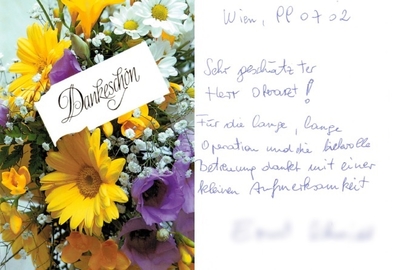 Dankeschön
Wien,            07 02
Sehr geschätzter
Herr Oberarzt!
Für die lange, lange
Operation und die liebevolle
Betreuung dankt mit einer
kleinen Aufmerksamkeit